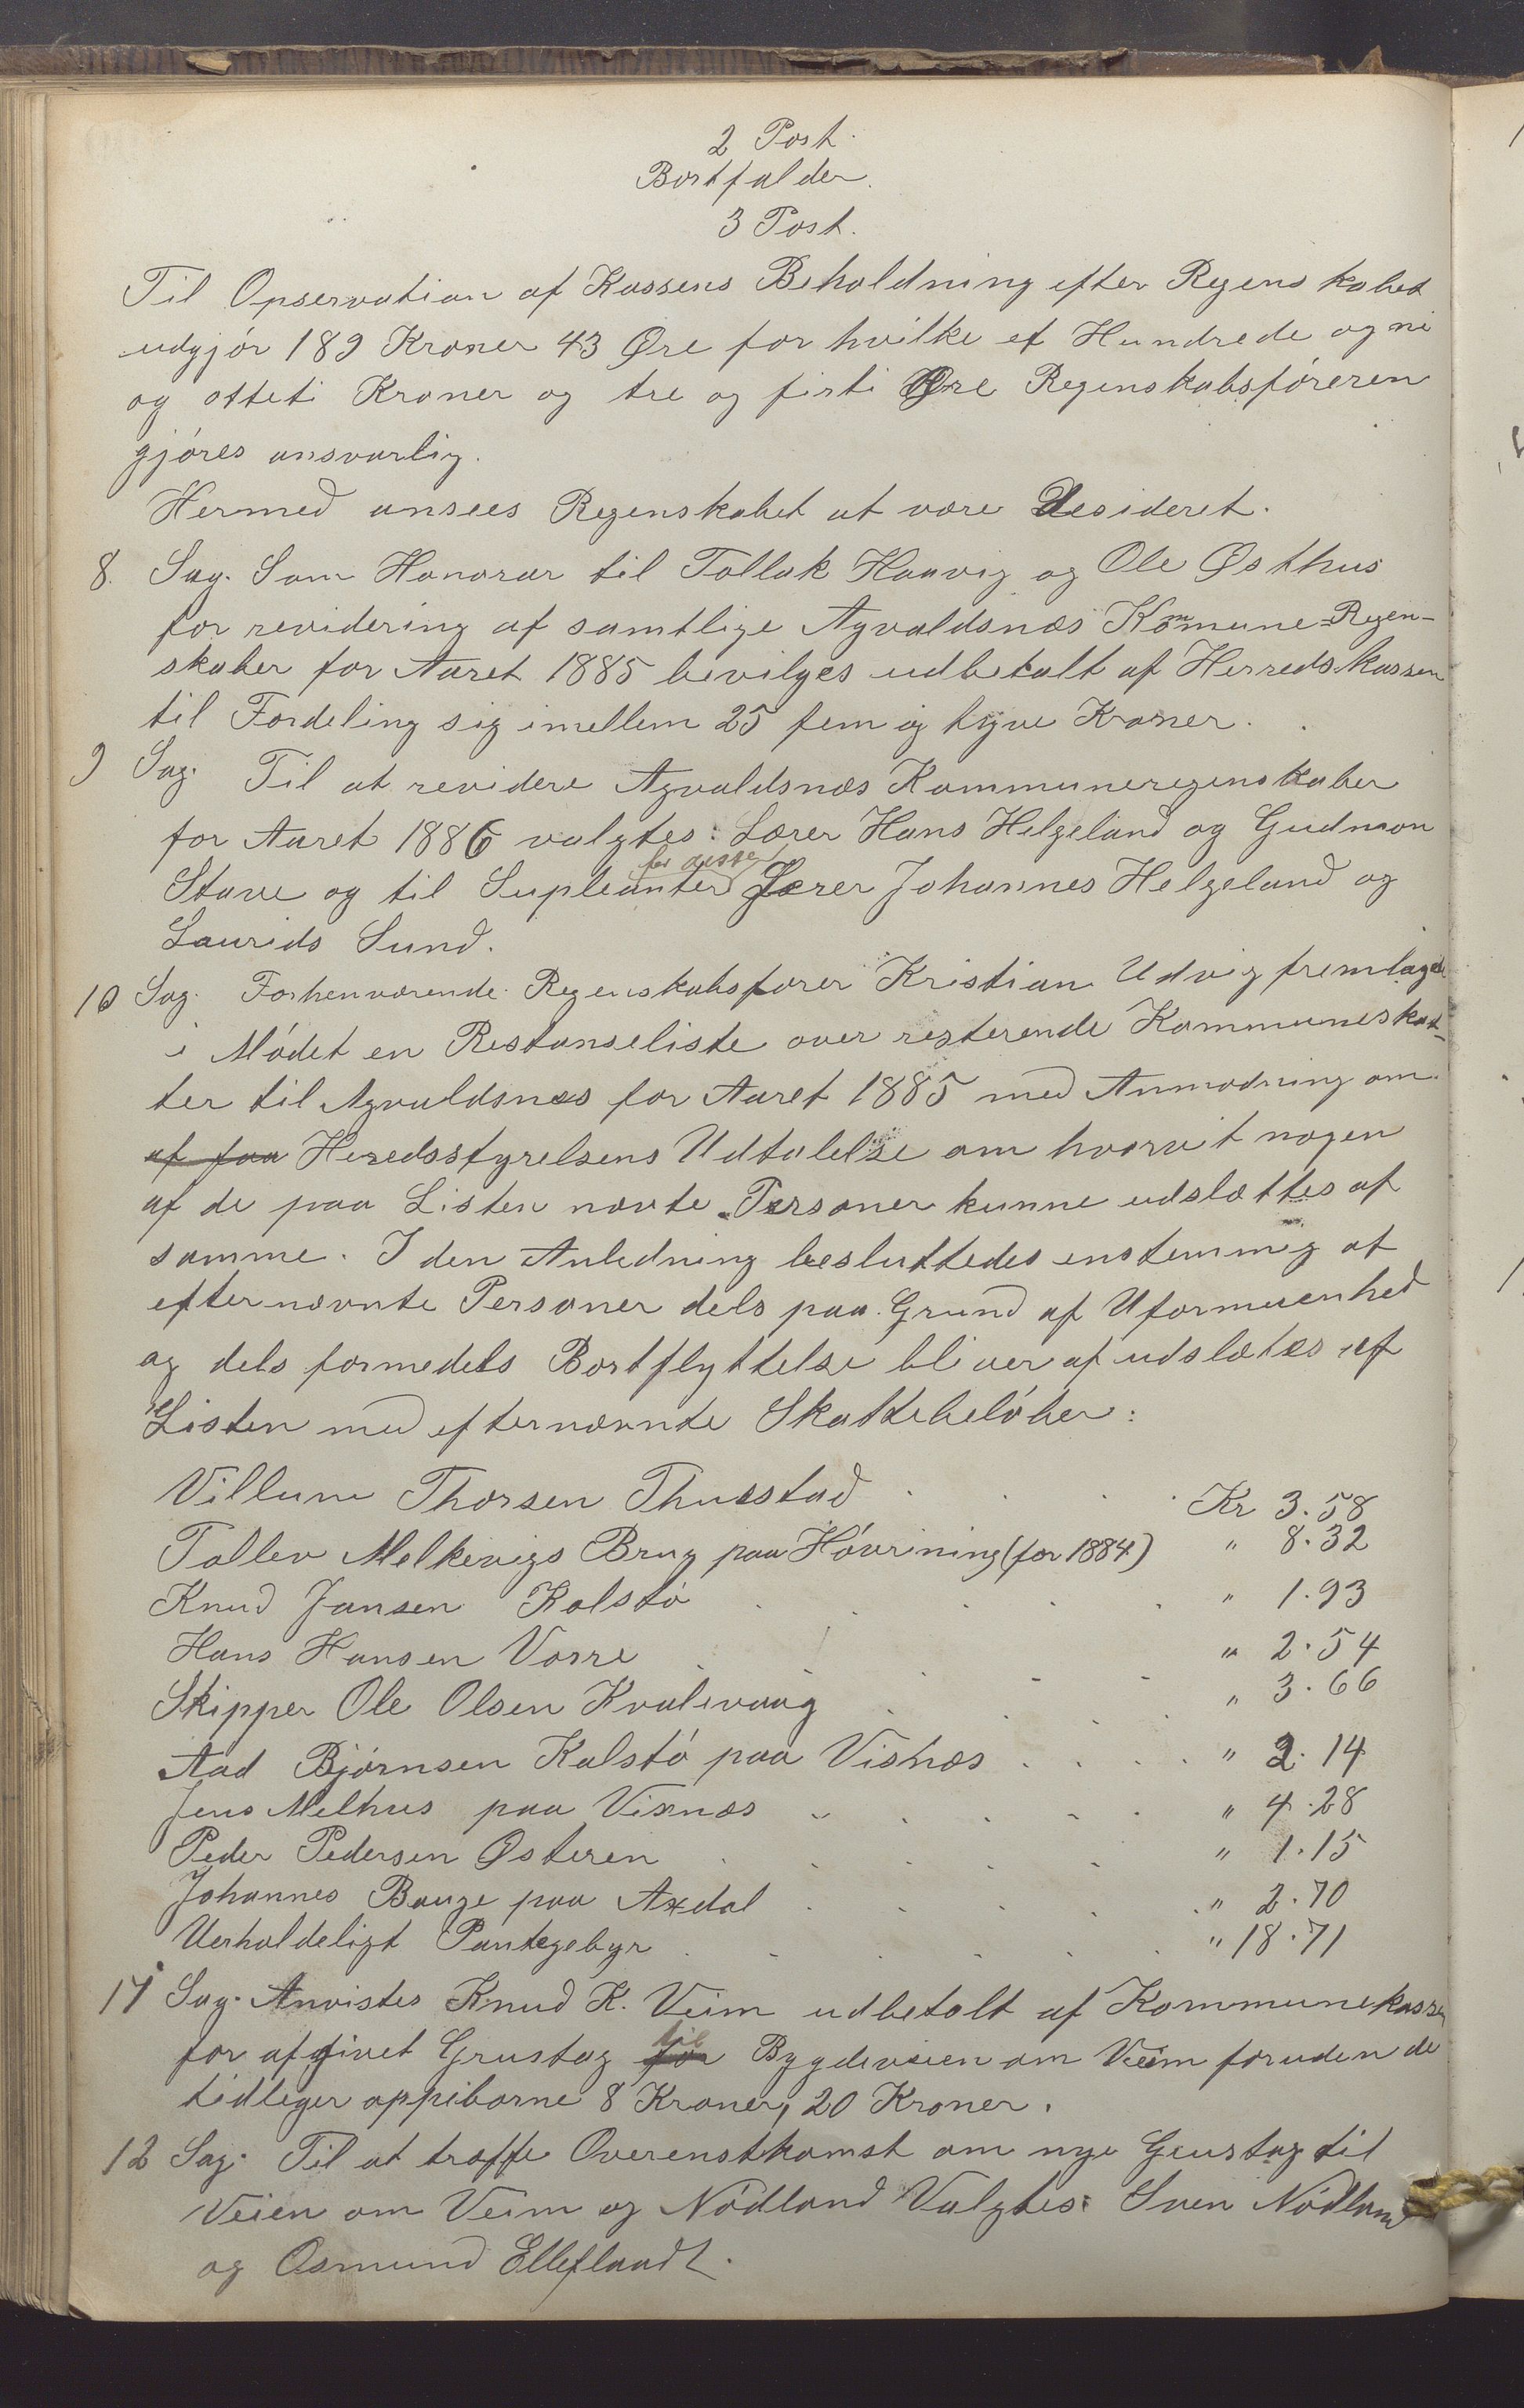 2 Post.
Bortfalder.
3 Post.
Til Opservation af Kassens Beholdning efter Regenskabet
udgjör 189 Kroner 43 Øre for hvilke et Hundrede og ni
og otteti Kroner og tre og firti Øre Regenskabsföreren
gjöres ansvarlig.
Hermed ansees Regenskabet at være Desideret.
8. Sag. Som Honorar til Tollak Haavig og Ole Østhus
for revidering af samtlige Agvaldsnæs Kommune-Regen-
skaber for Aaret 1885 bevilges udbetalt af Herredskassen
til Fordeling sig imellem 25 fem og tyve Kroner.
9 Sag. Til at revidere Agvaldsnæs Kommuneregenskaber
for Aaret 1886 valgtes: Lærer Hans Helgeland og Gudmon
for disse
Stave og til Supleanter Lærer Johannes Helgeland og
Laurids Sund.
10 Sag. Forhenværende Regenskabsförer Kristian Udvig fremlagde
i Mödet en Restanseliste over resterende Kommuneskat-
ter til Agvaldsnæs for Aaret 1885 med Anmodning om
at faa Heredsstyrelsens Udtalelse om hvorvit nogen
af de paa Listen nævte Personer kunne udslættes af
samme. I den Anledning besluttedes enstemmig at
efternævnte Personer dels paa Grund af Uformuenhed
og dels formedels Bortflyttelse bliver at udslætes af
Listen med efternævnte Skattebelöber:
Villum Thorsen Thuestad . . . . Kr 3.58
Tollev Melkevigs Brug paa Hövrining (for 1884) " 8.32
Knud Jansen Kolstö . . . . . " 1.93
Hans Hansen Vorre . . . . . " 2.54
Skipper Ole Olsen Kvalevaag . . . . " 3.66
Aad Björnsen Kalstö paa Visnæs . . . . " 2.14
Jens Melhus paa Visnæs . . . . . " 4.28
Peder Pedersen Østeren . . . . . " 1.15
Johannes Bauge paa Axdal . . . . . " 2.70
Uerholdeligt Pantegebyr . . . . . " 18.71
11 Sag. Anvistes Knud K. Veim udbetalt af Kommunekassen
for afgivet Grustag for til Bygdeveien om Veim foruden de
tidleger oppiborne 8 Kroner, 20 Kroner.
12 Sag. Til at træffe Overenstkomst om nye Grustag til
Veien om Veim og Nödland Valgtes: Sven Nödland
og Osmund Elleflaadt.